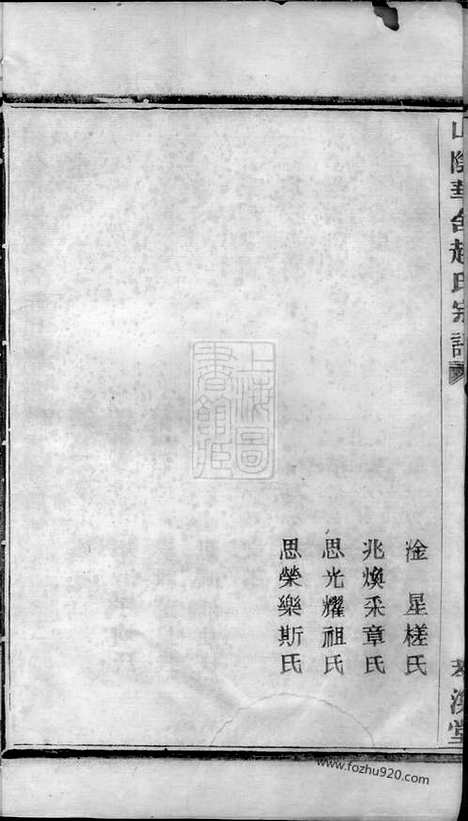 山陰華舍趙氏宗譜
淦星槎氏
兆煥采章氏
思光耀祖氏
思榮樂斯氏
溪堂
上海圖書館藏
www.fozhu920.com